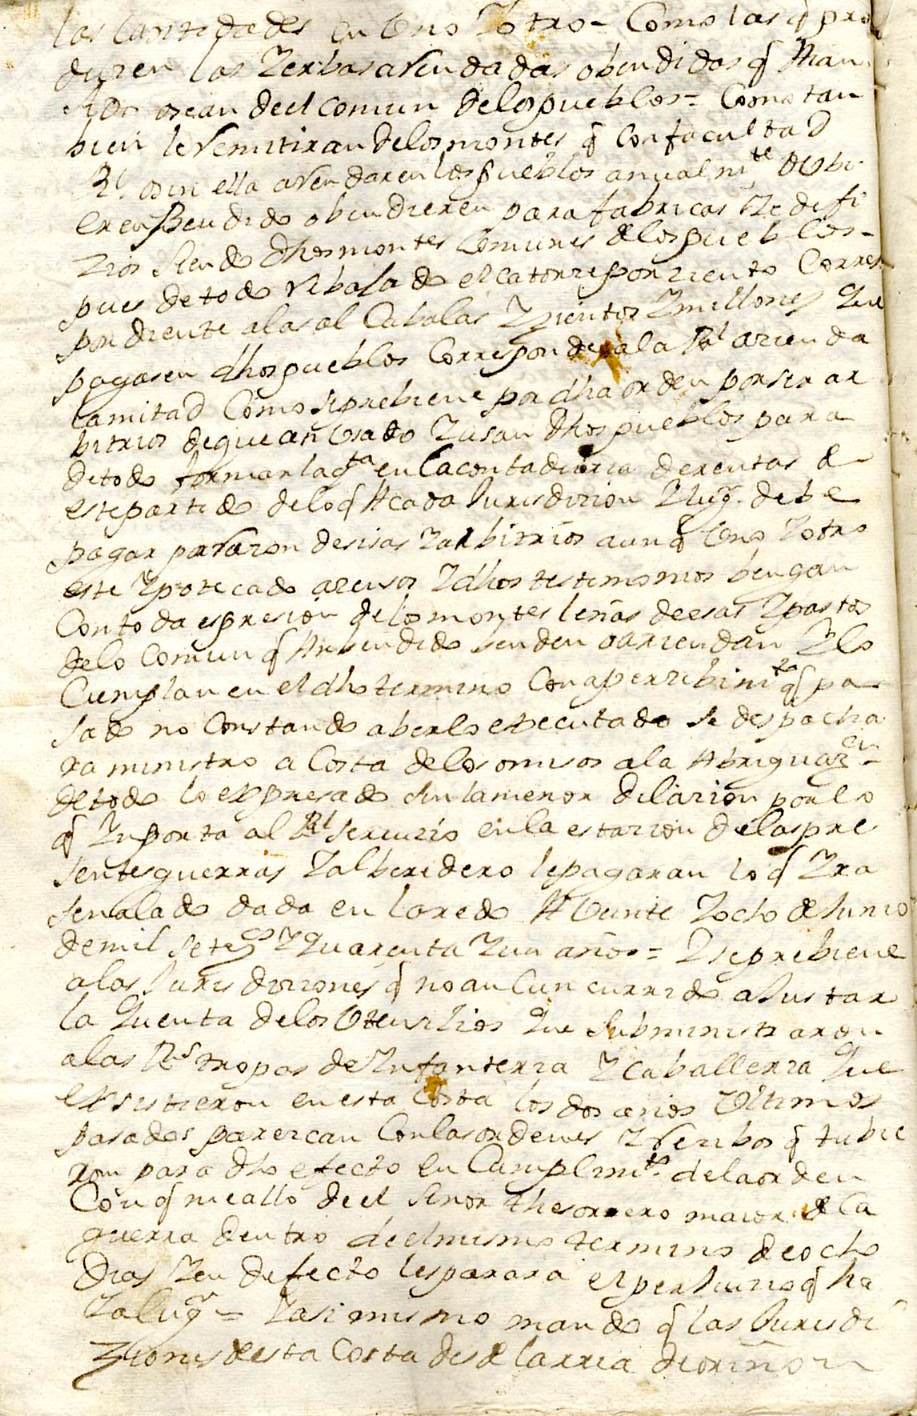 las Cantidades en Uno Y otro = Como las q̃ pro
duzen las Yerbas arendadas o bendidas q̃ Aian
sido o sean de el comun de los pueblos = Como tan
bien le Remitiran de los montes q̃ con facultad
Rl o sin ella arendaren los pueblos anualmte Ubi
eren Bendido o bendieren para fabricas Y edefi
zios siendo dhos montes Comunes de los pueblos =
pues de todo rebajado el catorze por ziento Corres
pondiente a las alCabalas Y zientos Y millones que
pagasen dhos pueblos Corresponde a la Rl azienda
la mitad Como se prebiene por dha orden por ser ar
bitrios de que an Usado Y usan dhos pueblos para
de todo formar la qta en la contaduria de rentas de
este partido de lo q̃ A cada Jurisdizion Y lugr. debe
pagar por razon de sisas Y arbitrios aunq̃ Uno Y otro
este Ypotecado a zensos Y dhos testimonios bengan
Con toda espresion de los montes leñas deesas Y pastos
de lo Comun q̃ An bendido benden o arriendan Y lo
Cumplan en el dho termino Con aperzibimto q̃ pa
sado no Constando aberlo executado se despacha
ra ministro a Costa de los omisos a la Abriguazon
de todo lo expresado sin la menor dilazion por lo
q̃ Ynporta al Rl serbizio en la estazion de las pre
sentes guerras Y al beredero le pagaran lo q̃ Yra
señalado dada en laredo A Veinte Y ocho de Junio
de mil setecos Y quarenta Y un años = Y se prebiene
a las Jurisdiziones q̃ no an Cuncurrido a Justar
la quenta de los Utensilios que subministraron
a las Rs tropas de Ynfanteria Y caballeria que
exsistieron en esta Costa los dos años Ultimos
pasados parezcan Con las ordenes Y Rezibos q̃ tubie
ron para dho efecto en Cumplimto de la orden
Con q̃ me allo de el señor thesorero maior de la
guerra dentro de el mismo termino de ocho
Dias Y en defecto les parara el perJuizio q̃ ha
Ya lugr = Y asi mismo mando q̃ las Jurisdi
Ziones de esta Costa desde la rria de oriñon